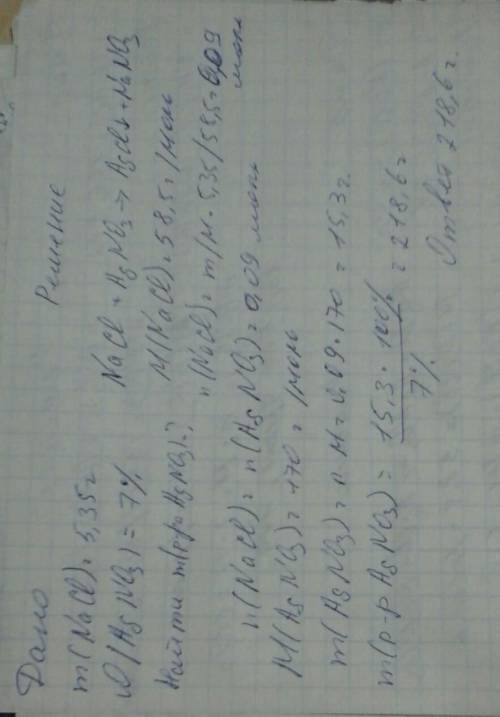 Дано
m(NaCl) = 5,35г
ω(AgNO3) = 7%
Найти m(р-ра AgNO3)-?
Решение
NaCl + AgNO3 → AgCl↓ + NaNO3
M(NaCl) = 58,5г/моль
n(NaCl) = m/M = 5,35/58,5 = 0,09 моль
n(NaCl) = n(AgNO3) = 0,09 моль
M(AgNO3) = 170 г/моль
m(AgNO3) = n·M = 0,09·170 = 15,3г.
m(р-р AgNO3) = 15,3·100% / 7% = 218,6г
Ответ 218,6г.